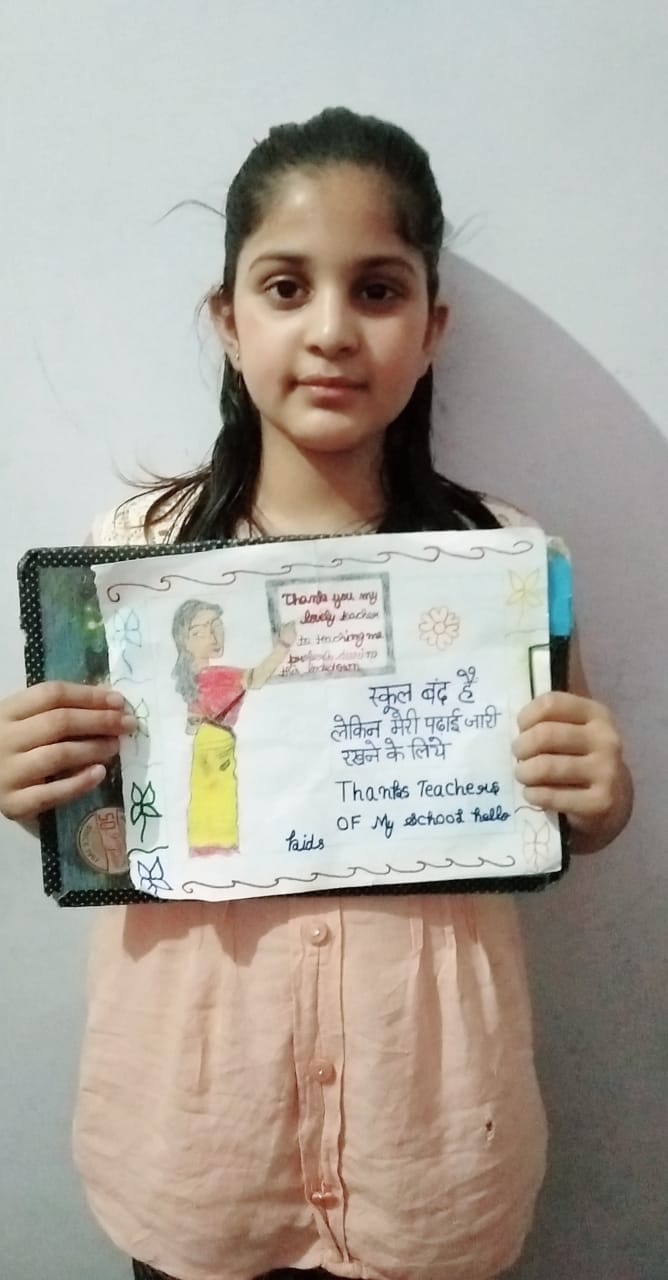 Thank you my
lovely teacher
to teaching me
this lockdown
स्कूल बंद है
लेकिन मेरी पढाई जारी
रखने के लिये
Thanks Teachers
OF My School hello
kids
50